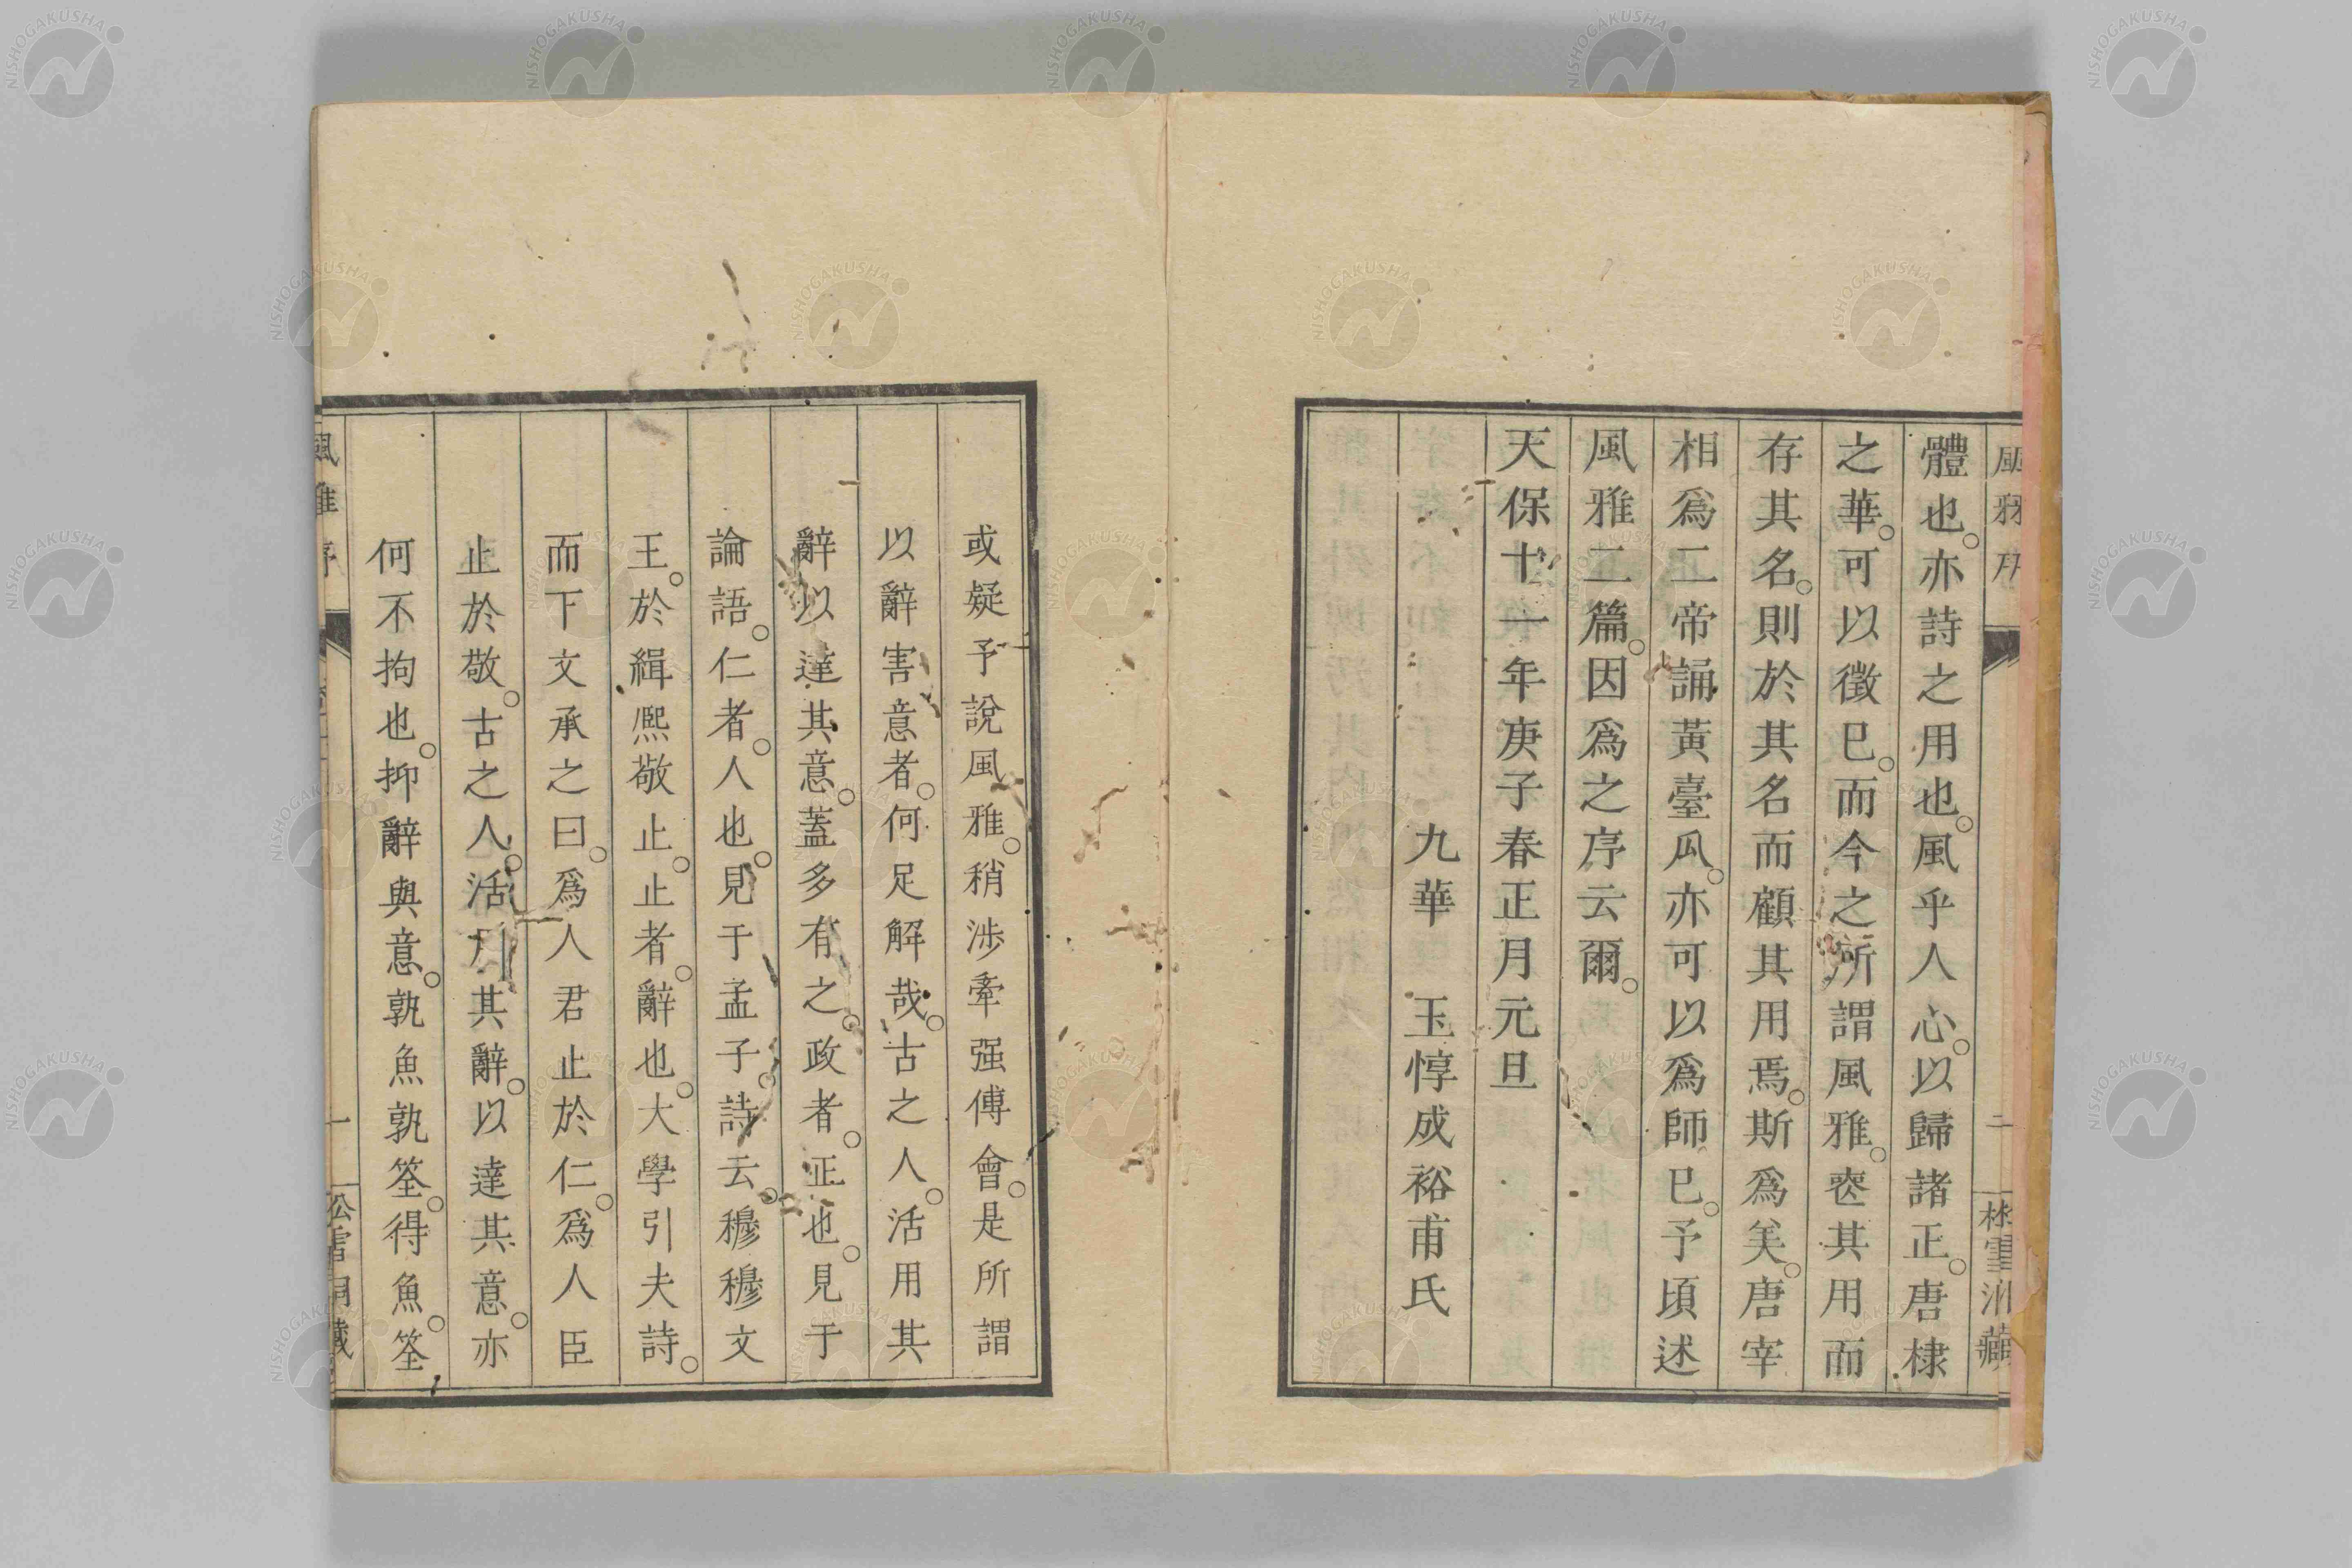 體也。亦詩之用也。風乎人心。以歸諸正。唐棣
之華。可以徵已。而今之所謂風雅。喪其用而
存其名。則於其名而顧其用焉。斯爲美。唐宰
相爲二帝誦黃臺瓜。亦可以爲師已。予頃述
風雅二篇。因爲之序云爾。
天保十一年庚子春正月元旦
九華 玉惇成裕甫氏
或疑予說風雅。稍涉牽强傅會。是所謂
以辭害意者。何足解哉。古之人。活用其
辭以達其意。蓋多有之。政者。正也。見于
論語。仁者。人也。見于孟子。詩云。穆穆文
王。於緝熙敬止。止者。辭也。大學引夫詩。
而下文承之曰。爲人君止於仁。爲人臣
止於敬。古之人。活用其辭。以達其意。亦
何不拘也。抑辭與意。孰魚孰筌。得魚。筌
風雅序
一
NISHOGAKUSHA